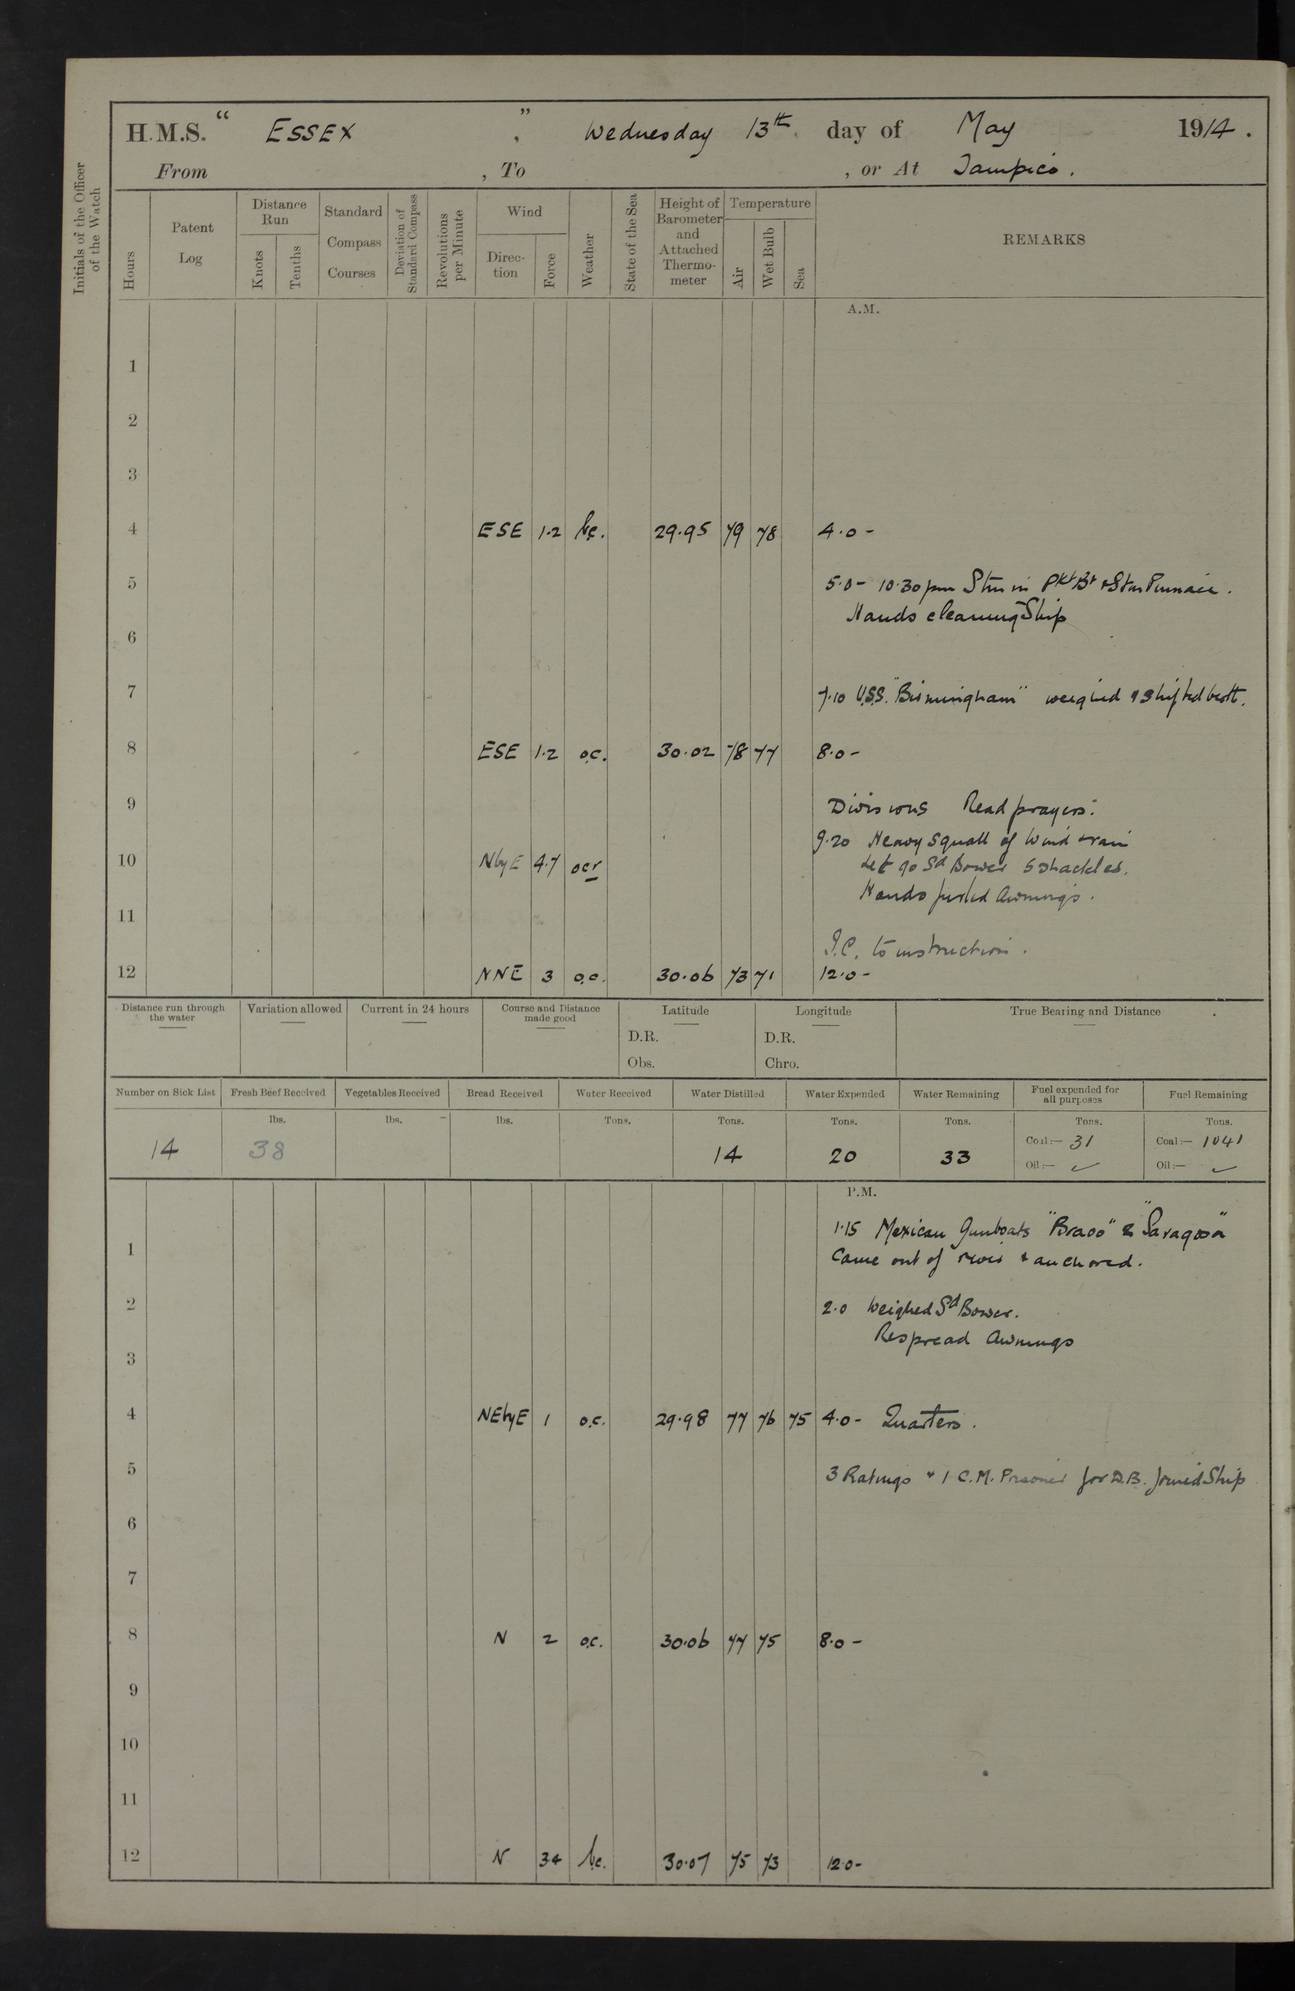 H.M.S. " ESSEX ", Wednesday 13th day of May 1914.
From , To , or At Tampico.
Initials of the Officer of the Watch
Hours
Patent Log
Distance Run
Knots
Tenths
Standard Compass Courses
Deviation of Standard Compass
Revolutions per Minute
Wind
Direction
Force
Weather
State of the Sea
Height of Barometer and Attached Thermometer
Temperature
Air
Wet Bulb
Sea
REMARKS
A.M.
1
2
3
4 ESE 1.2 b.c. 29.95 79 78 4.0 -
5 5.0 - 10.30 pm Stm in Pkt Bt & Stm Pinnace.
Hands cleaning Ship
6
7 7.10 U.S.S. "Birmingham" weighed & shifted berth.
8 ESE 1.2 o.c. 30.02 78 77 8.0 -
9 Divisions Read prayers.
9.20 Heavy squall of Wind & rain
10 NbyE 4.7 ocr let go Sd Bower 5 shackles.
Hands furled Awnings.
11
I.C. to instruction.
12 NNE 3 o.c. 30.06 73 71 12.0 -
Distance run through the water
Variation allowed
Current in 24 hours
Course and Distance made good
Latitude
D.R.
Obs.
Longitude
D.R.
Chro.
True Bearing and Distance
Number on Sick List Fresh Beef Received Vegetables Received Bread Received Water Received Water Distilled Water Expended Water Remaining Fuel expended for all purposes Fuel Remaining
lbs. lbs. lbs. Tons. Tons. Tons. Tons. Tons. Tons.
14 38 14 20 33 Coal:— 31 Coal:— 1041
Oil:— ✓ Oil:— ✓
P.M.
1.15 Mexican Gunboats "Bravo" & "Saragosa"
1 Came out of river & anchored.
2 2.0 Weighed Sd Bower.
Respread Awnings
3
4 NEbyE 1 o.c. 29.98 77 76 75 4.0 - Quarters.
5 3 Ratings & 1 C.M. Prisoner for D.B. joined Ship
6
7
8 N 2 o.c. 30.06 77 75 8.0 -
9
10
11
12 N 34 b.c. 30.07 75 73 12.0 -